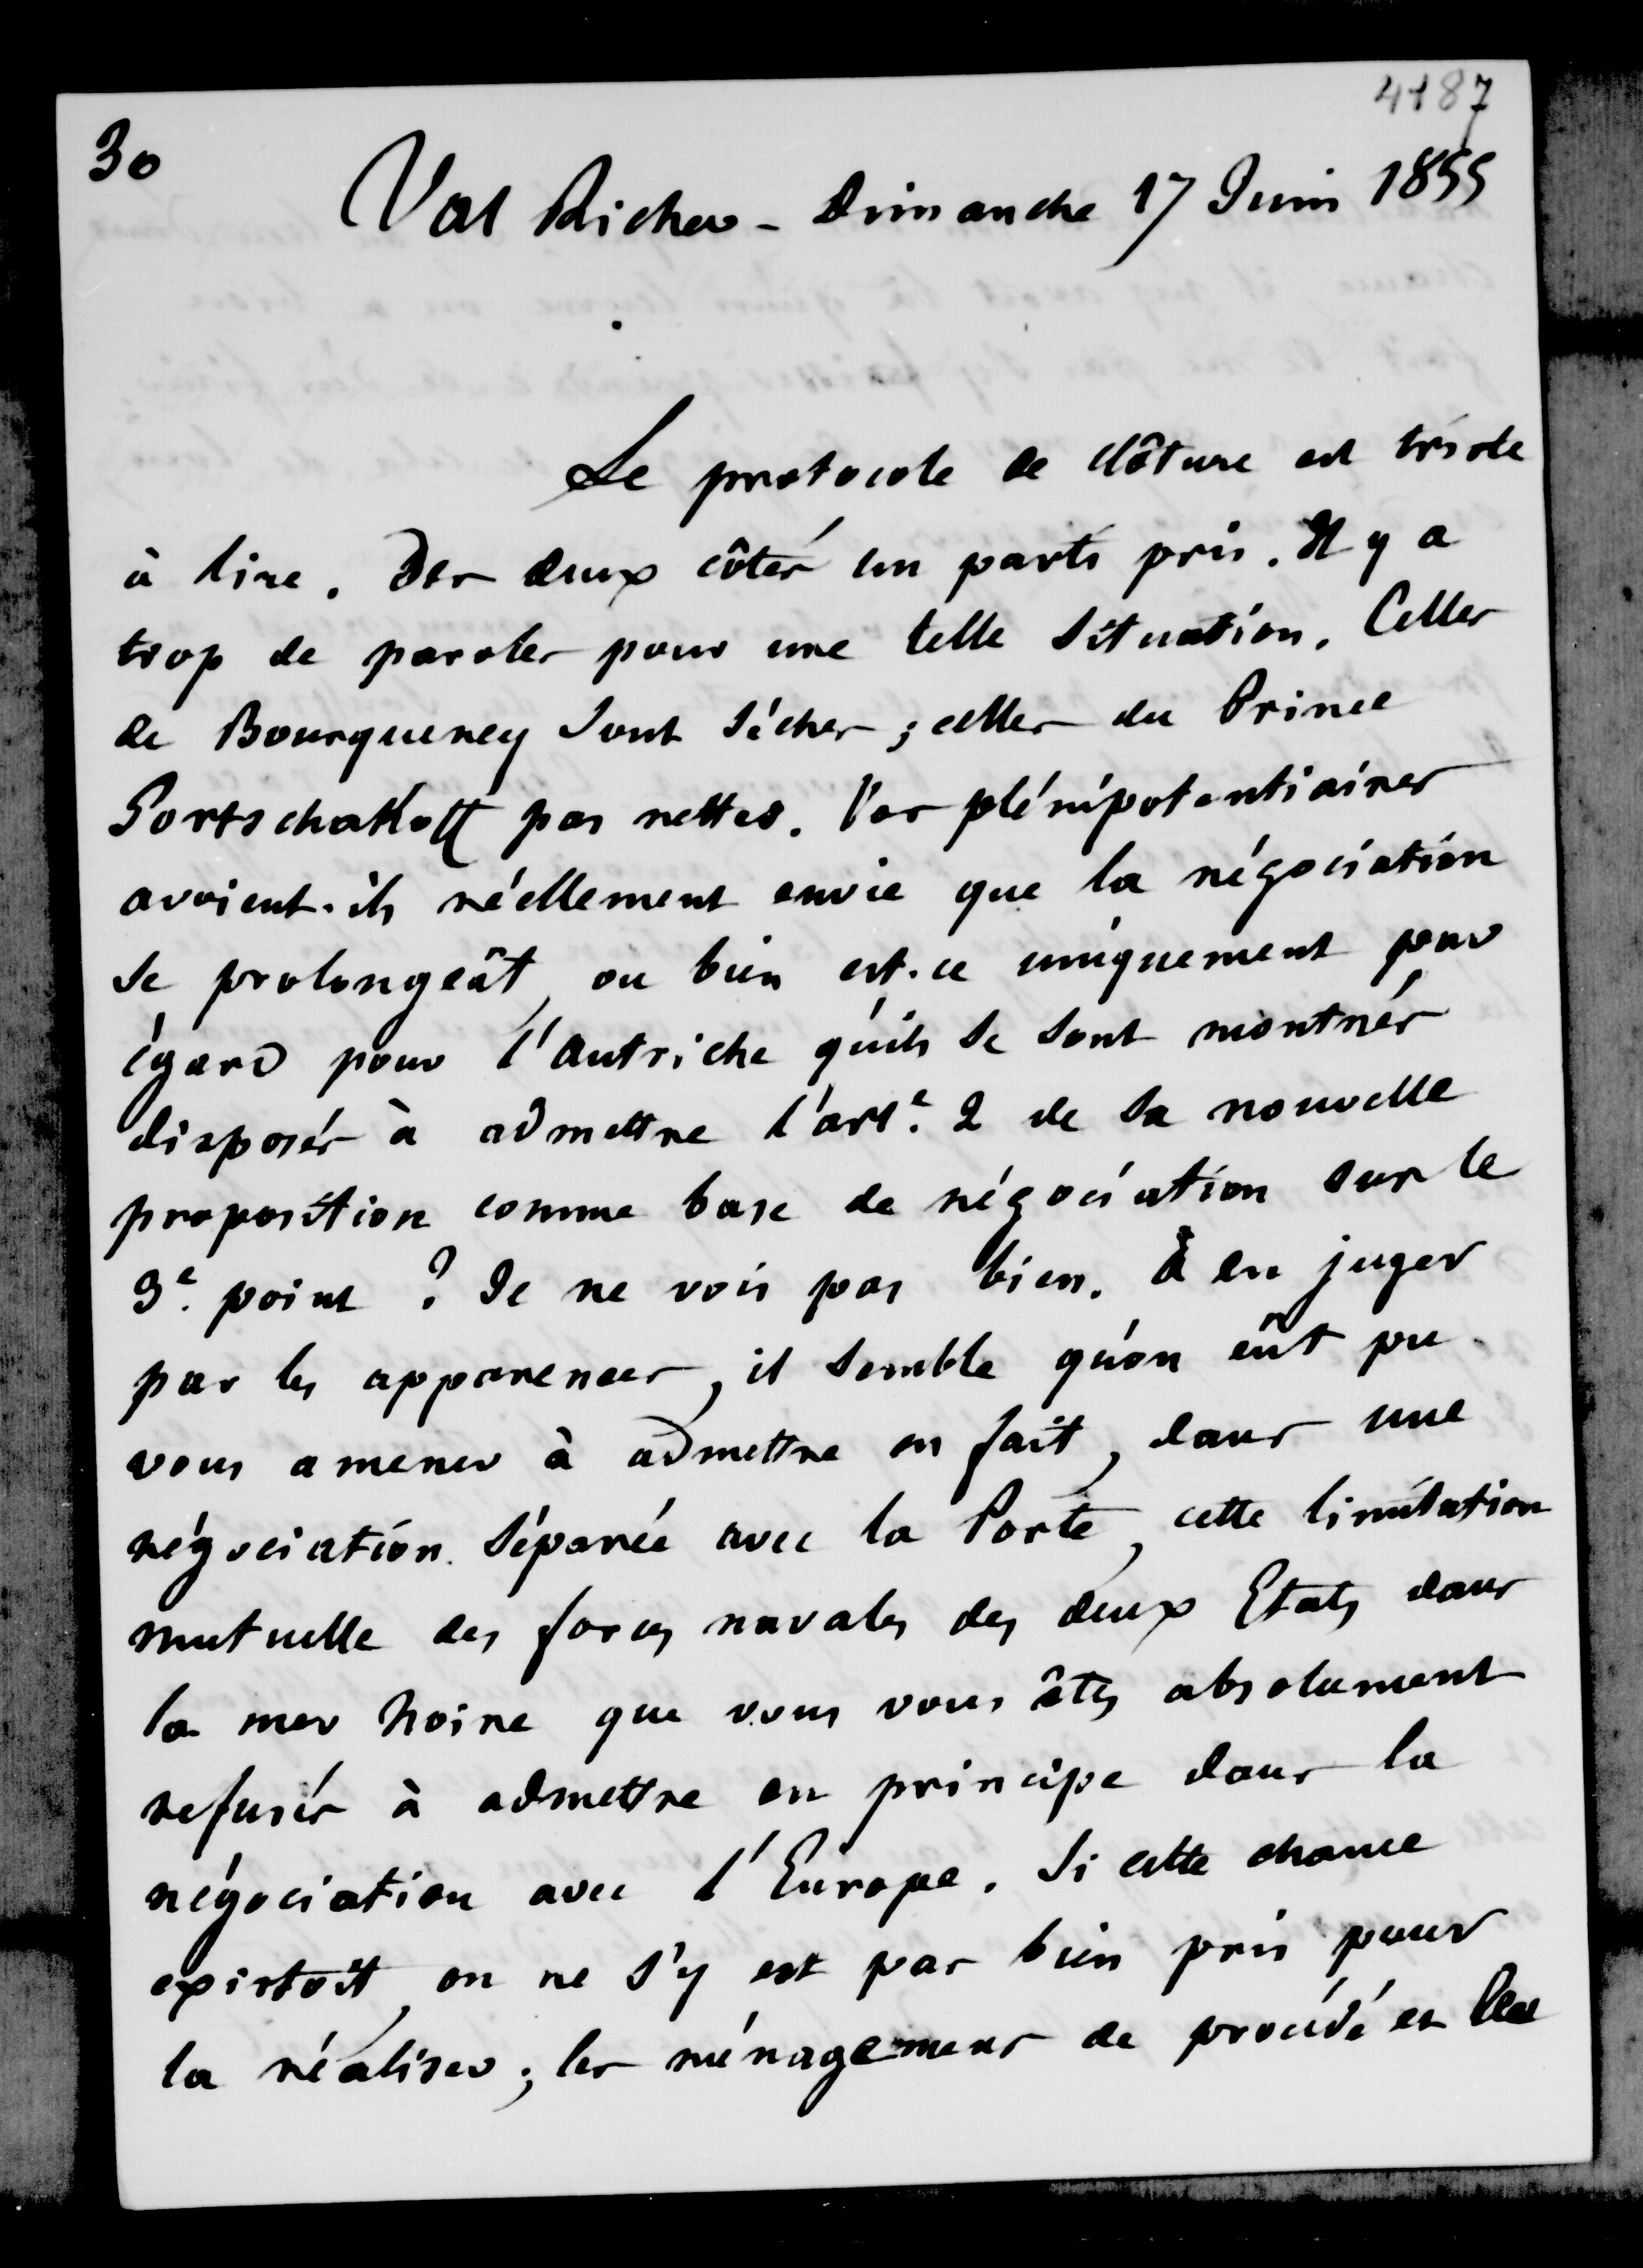 4187
30
Val Richer - Dimanche 17 Juin 1855
Le protocole de clôture est triste
à lire. Des deux côtés un parti pris. Il y a
trop de paroles pour une telle situation. Celles
de Bourqueney sont sèches ; celles du Prince
Gortschakoff pas nettes. Vos plénipotentiaires
avoient-ils réellement envie que la négociation
se prolongeât, ou bien est-ce uniquement par
égard pour l'Autriche qu'ils se sont montrés
disposés à admettre l'art.e 2 de sa nouvelle
proposition comme base de négociation sur le
3e point ? Je ne vois pas bien. à en juger
par les apparences, il semble qu'on eût pu
vous amener à admettre en fait, dans une
négociation séparée avec la Porte, cette limitation
mutuelle des forces navales des deux Etats dans
la mer noire que vous vous êtes absolument
refusés à admettre en principe dans la
négociation avec l'Europe. Si cette chance
existoit, on ne s'y est pas bien pris pour
la réaliser ; les ménagemens de procédé et de